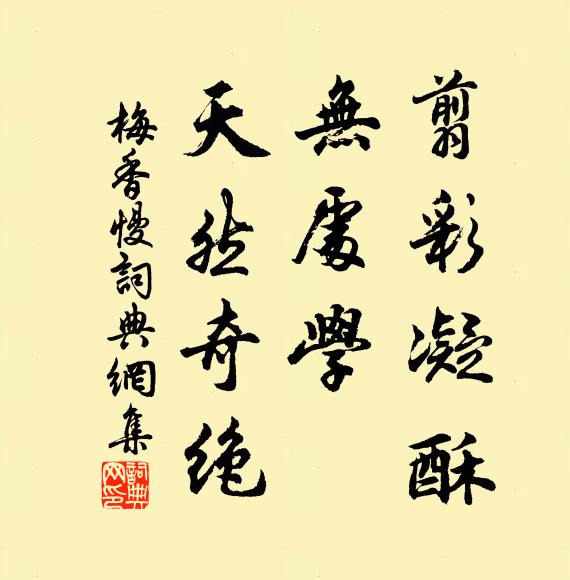 翦彩凝酥
無處學
天然奇絶
梅香慢詞典網集
詞典网印